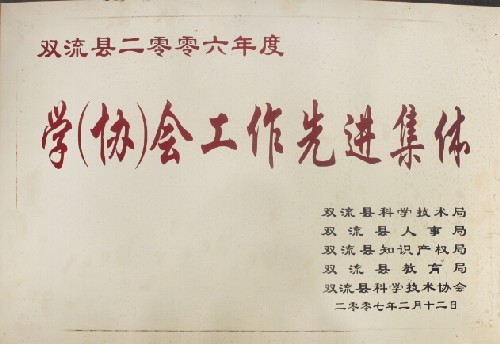 双流县二零零六年度
学(协)会工作先进集体
双流县科学技术局
双流县人事局
双流县知识产权局
双流县教育局
双流县科学技术协会
二零零七年二月十二日